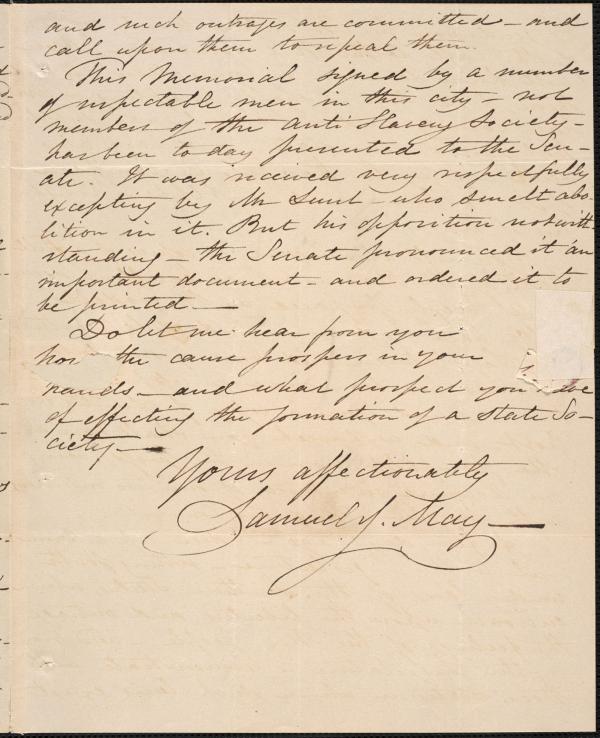 and such outrages are committed – and
call upon them to repeal them.
This Memorial signed by a number
of respectable men in this city – not
members of the Anti Slavery Society –
has been to day presented to the Sen-
ate. It was received very respectfully
excepting by Mr Lunt – who smelt abo-
lition in it. But his opposition notwith-
standing – the Senate pronounced it an
important document – and ordered it to
be printed –
Do let me hear from you
how the cause prospers in your
hands – and what prospect you
of effecting the formation of a State So-
ciety –
Yours affectionately
Samuel J. May –